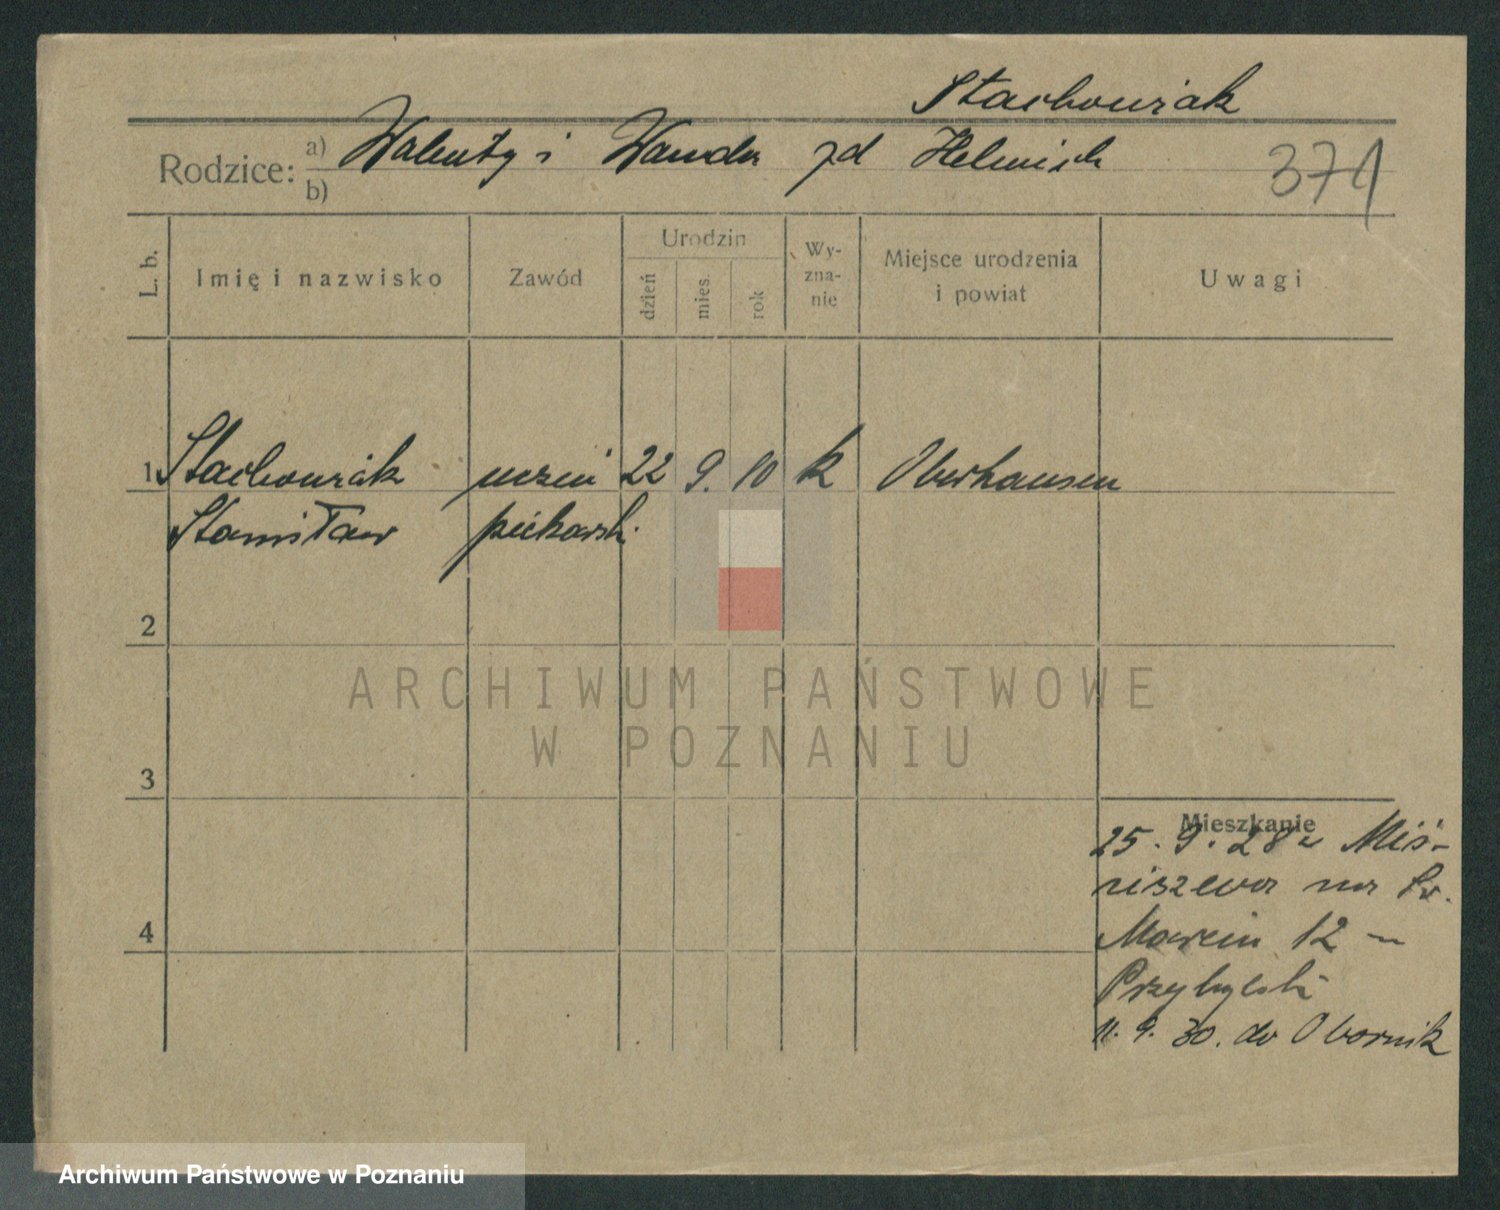 Stachowiak
Rodzice: a) Walenty i Wanda zd Helmich
b)
371
L. b. Imię i nazwisko Zawód Urodzin dzień mies. rok Wy-zna-nie Miejsce urodzenia i powiat Uwagi
1 Stachowiak uczeń 22 9. 10 k Oberhausen
Stanisław piekarski
2
ARCHIWUM PAŃSTWOWE
W POZNANIU
3
Mieszkanie
25. 9. 28 z
na Św.
4
Marcin 12 –
Przybylski
11. 9. 30. do Obornik
Archiwum Państwowe w Poznaniu